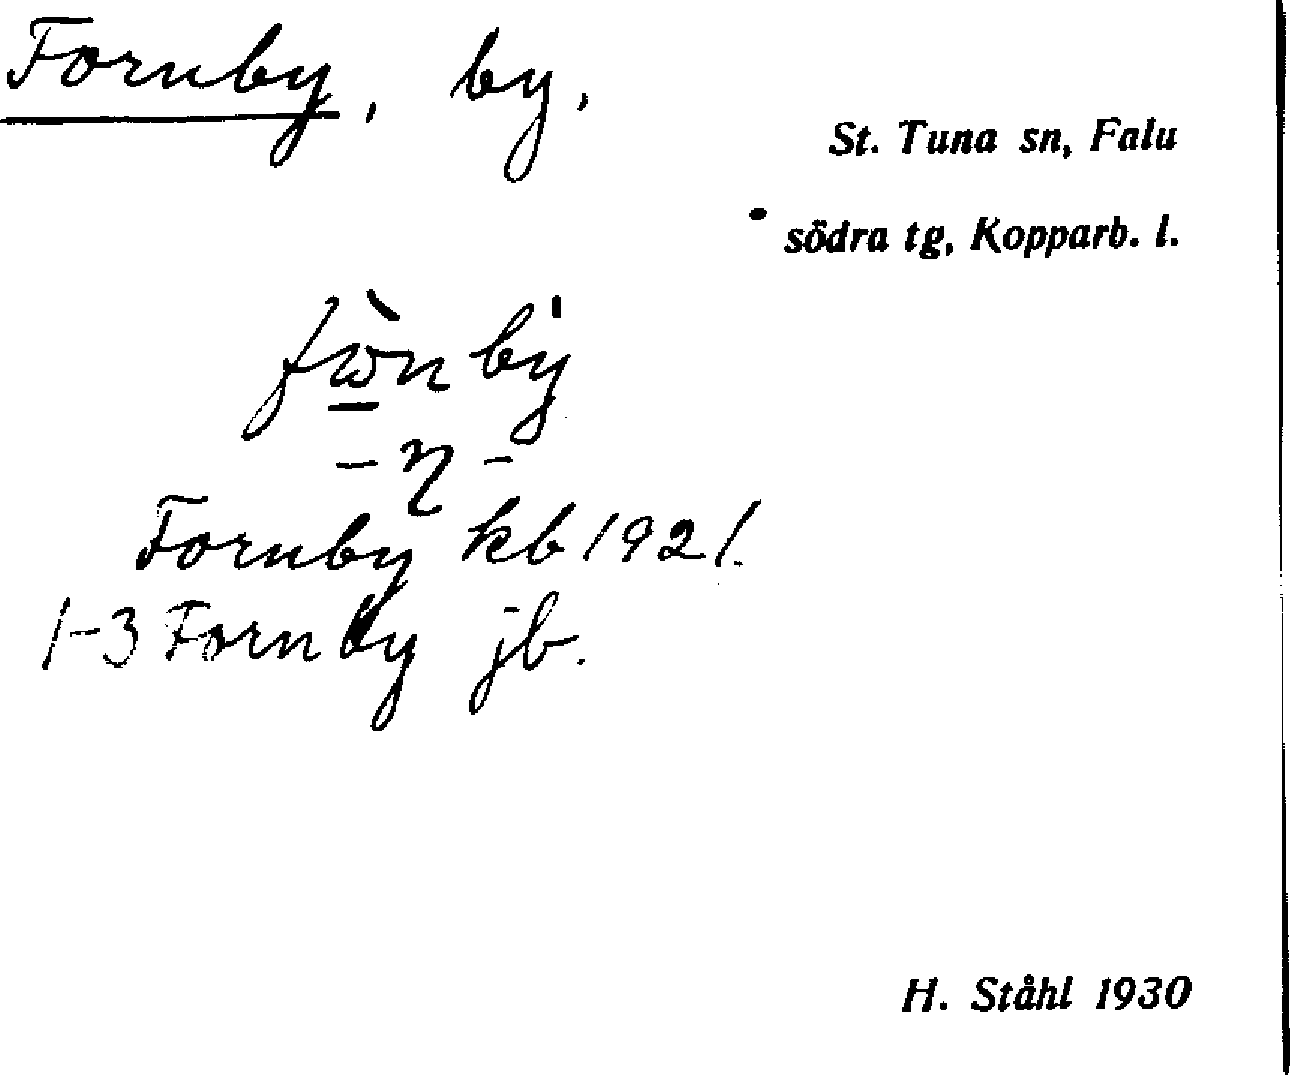 Fornby, by.
St. Tuna sn, Falu
södra tg, Kopparb. l.
fὼ̲nbẏ
-η-
Fornby kb 1921.
1-3 Fornby jb.
H. Ståhl 1930